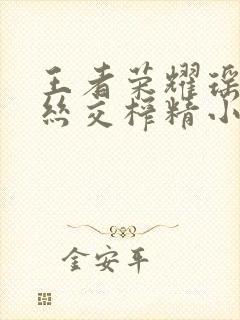 王者荣耀瑶
丝交榨精小
金安平